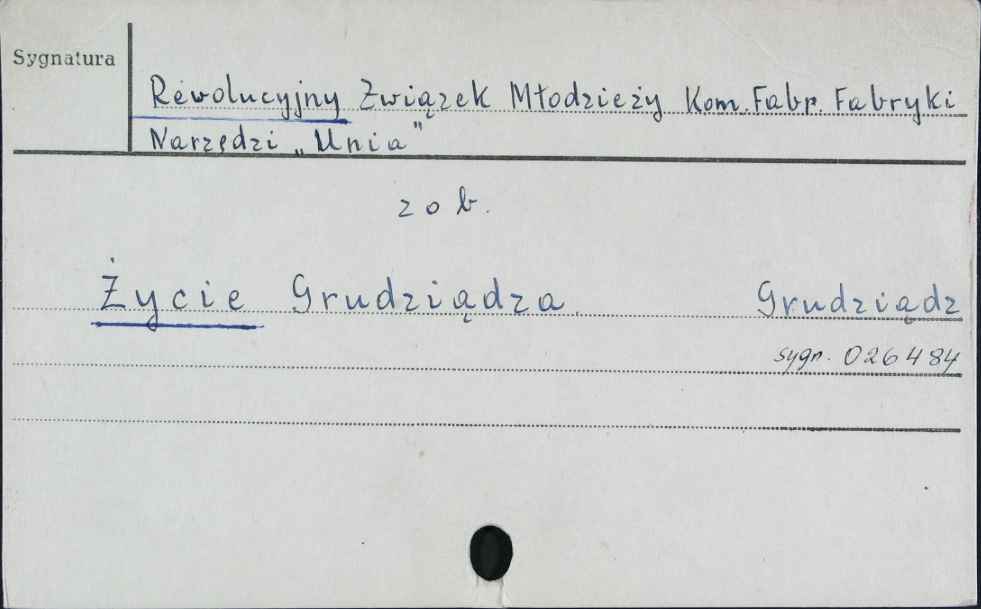 Sygnatura
Rewolucyjny Związek Młodzieży Kom. Fabr. Fabryki
Narzędzi „Unia”
zob.
Życie Grudziądza. Grudziądz
sygn. 026484